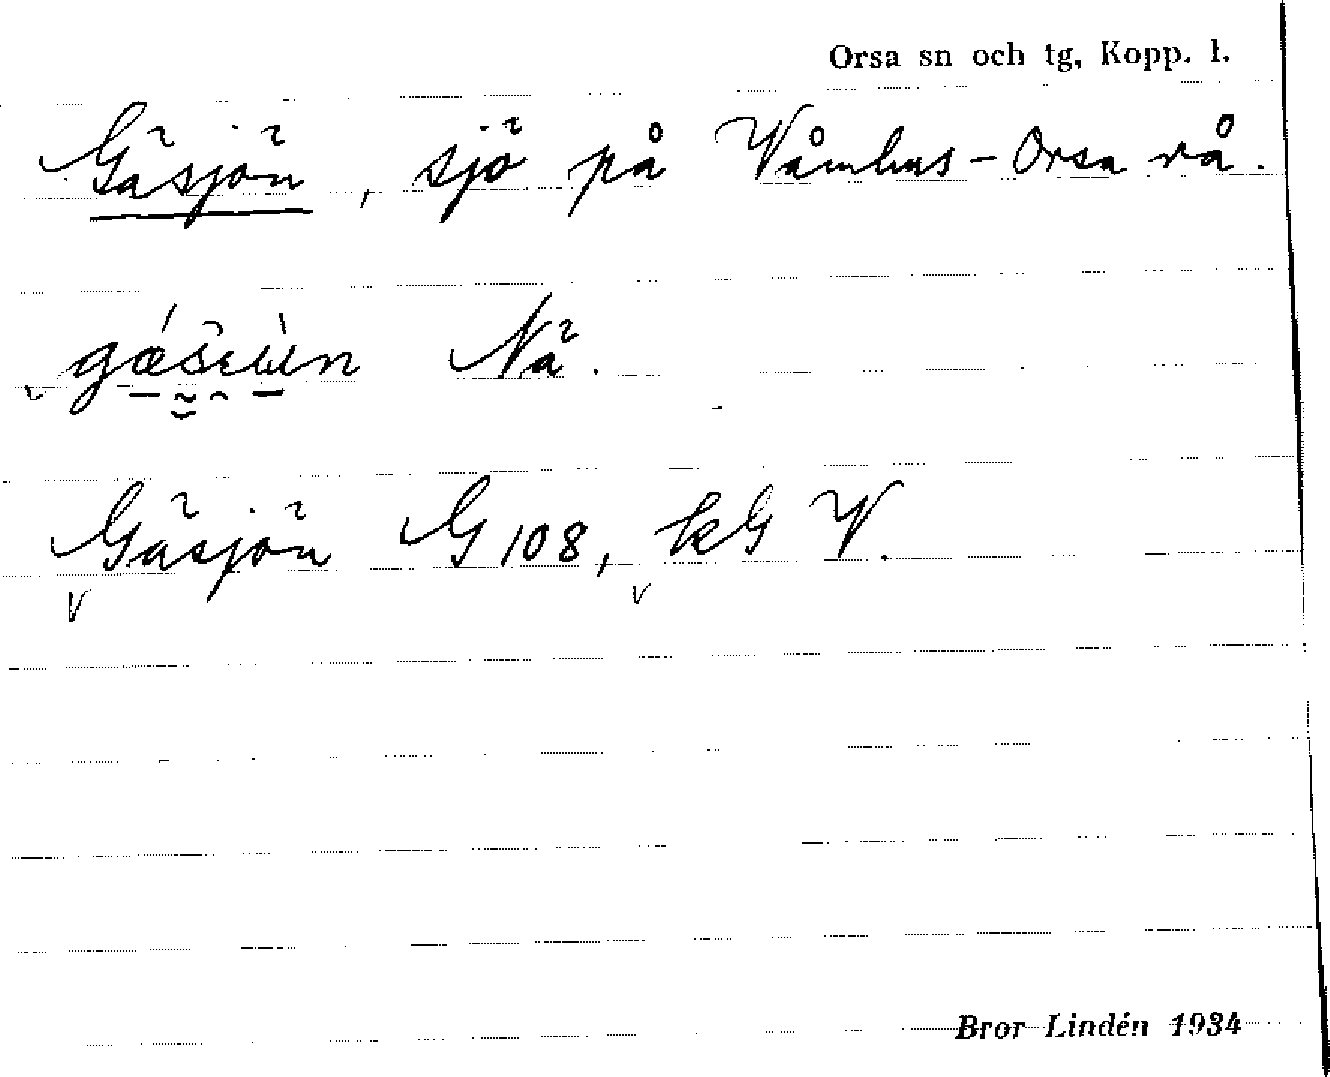 Orsa sn och tg, Kopp. l.
Gäsjön, sjö på Våmhus-Orsa rå.
Nä.
Gäsjön G 108, kG V.
V V
Bror Lindén 1934